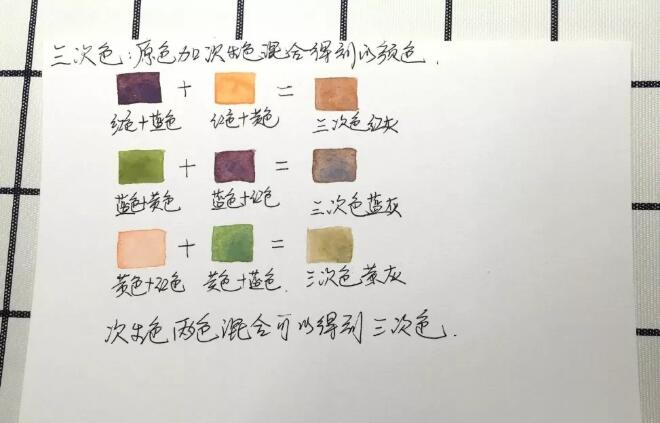 三次色：原色加次生色混合得到的颜色.
+ =
红色+蓝色 红色+黄色 三次色红灰
+ =
蓝色+黄色 蓝色+红色 三次色蓝灰
+ =
黄色+红色 黄色+蓝色. 三次色黄灰
次生色两色混合可以得到三次色.